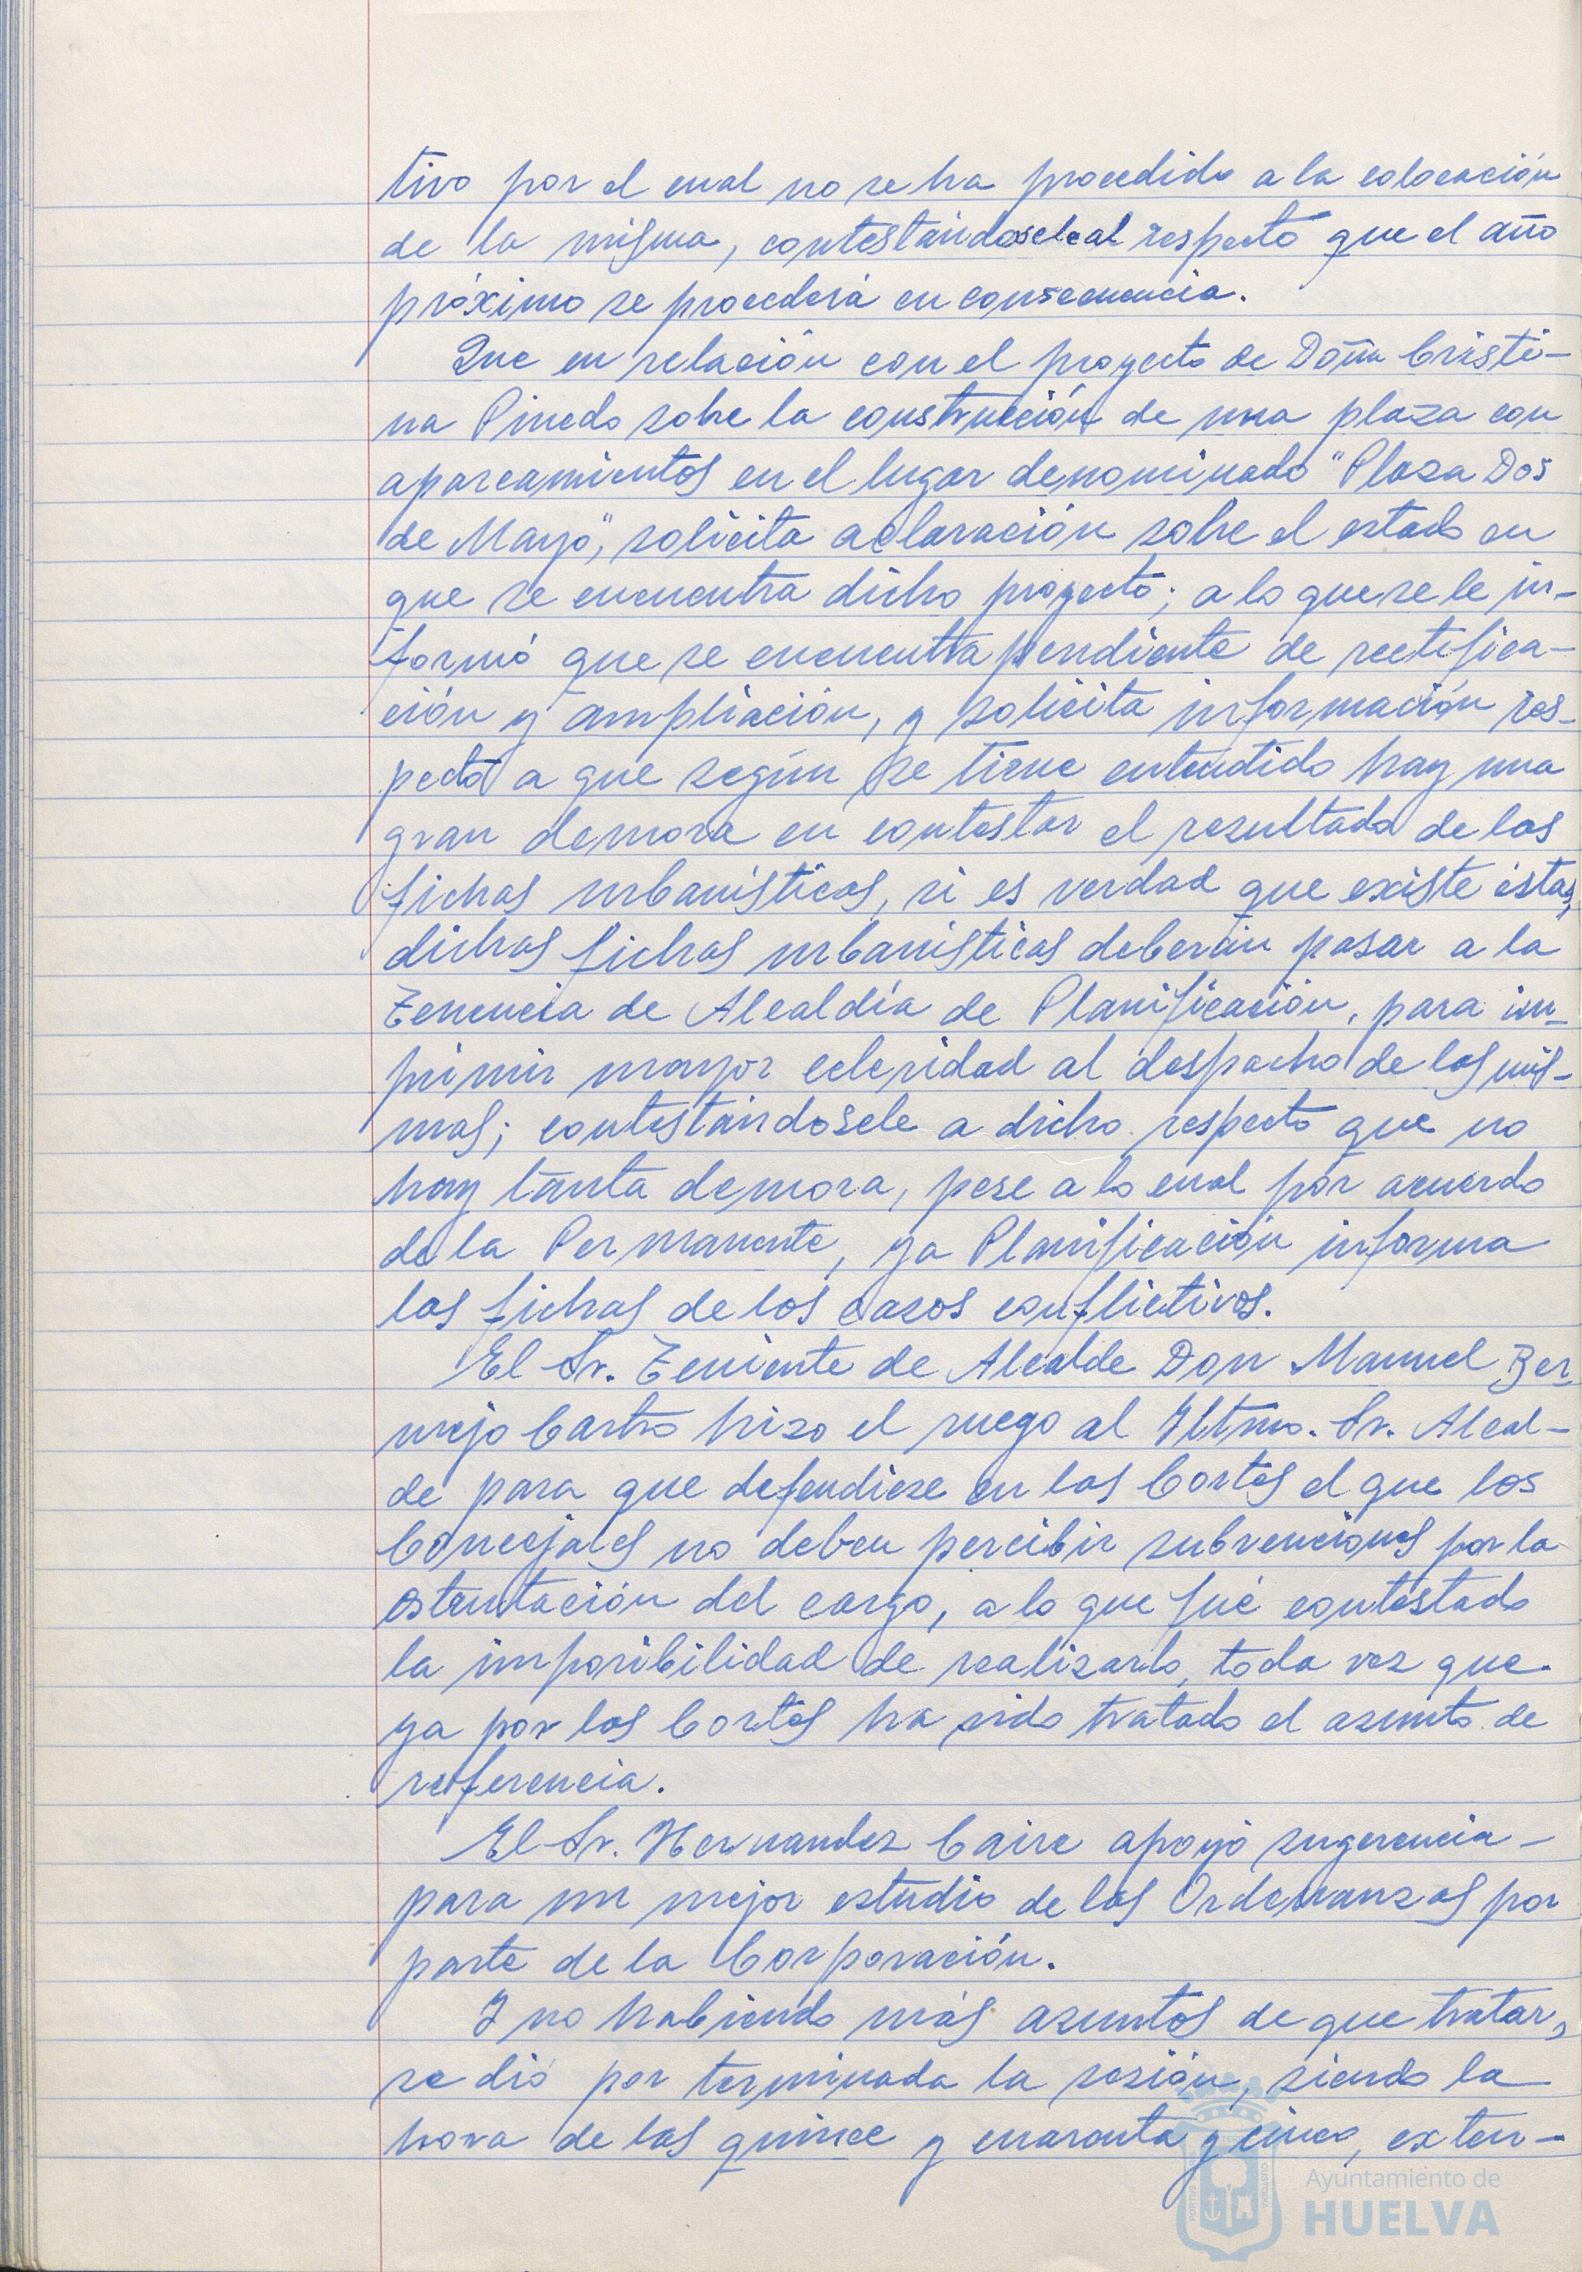 tivo por el cual no se ha procedido a la colocación
de la misma, contestándosele al respecto que el año
próximo se procederá en consecuencia.
Que en relación con el proyecto de Doña Cristi-
na Pinedo sobre la construcción de una plaza con
aparcamientos en el lugar denominado "Plaza Dos
de Mayo", solicita aclaración sobre el estado en
que se encuentra dicho proyecto; a lo que se le in-
formó que se encuentra pendiente de rectifica-
ción y ampliación, y solicita información res-
pecto a que según se tiene entendido hay una
gran demora en contestar el resultado de las
fichas urbanísticas, si es verdad que existe ésta,
dichas fichas urbanísticas deberán pasar a la
Tenencia de Alcaldía de Planificación, para im-
primir mayor celeridad al despacho de las mis-
mas; contestándosele a dicho respecto que no
hay tanta demora, pese a lo cual por acuerdo
de la Permanente, ya Planificación informa
las fichas de los casos conflictivos.
El Sr. Teniente de Alcalde Don Manuel Ber
mejo Castro hizo el ruego al Iltmo. Sr. Alcal-
de para que defendiese en las Cortes el que los
Concejales no deben percibir subvenciones por la
ostentación del cargo, a lo que fué contestado
la imposibilidad de realizarlo, toda vez que
ya por las Cortes ha sido tratado el asunto de
referencia.
El Sr. Hernandez Caire apoyó sugerencia-
para un mejor estudio de las Ordenanzas por
parte de la Corporación.
Y no habiendo más asuntos de que tratar,
se dió por terminada la sesión, siendo la
hora de las quince y cuarenta y cinco, exten-
Ayuntamiento de
HUELVA